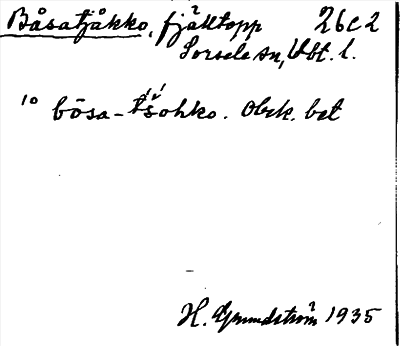 Båsatjåkko, fjälltopp 26c2
Sorsele sn, Vbt. l.
10 bōsa-tšohko. Obek. bet
H. Grundström 1935